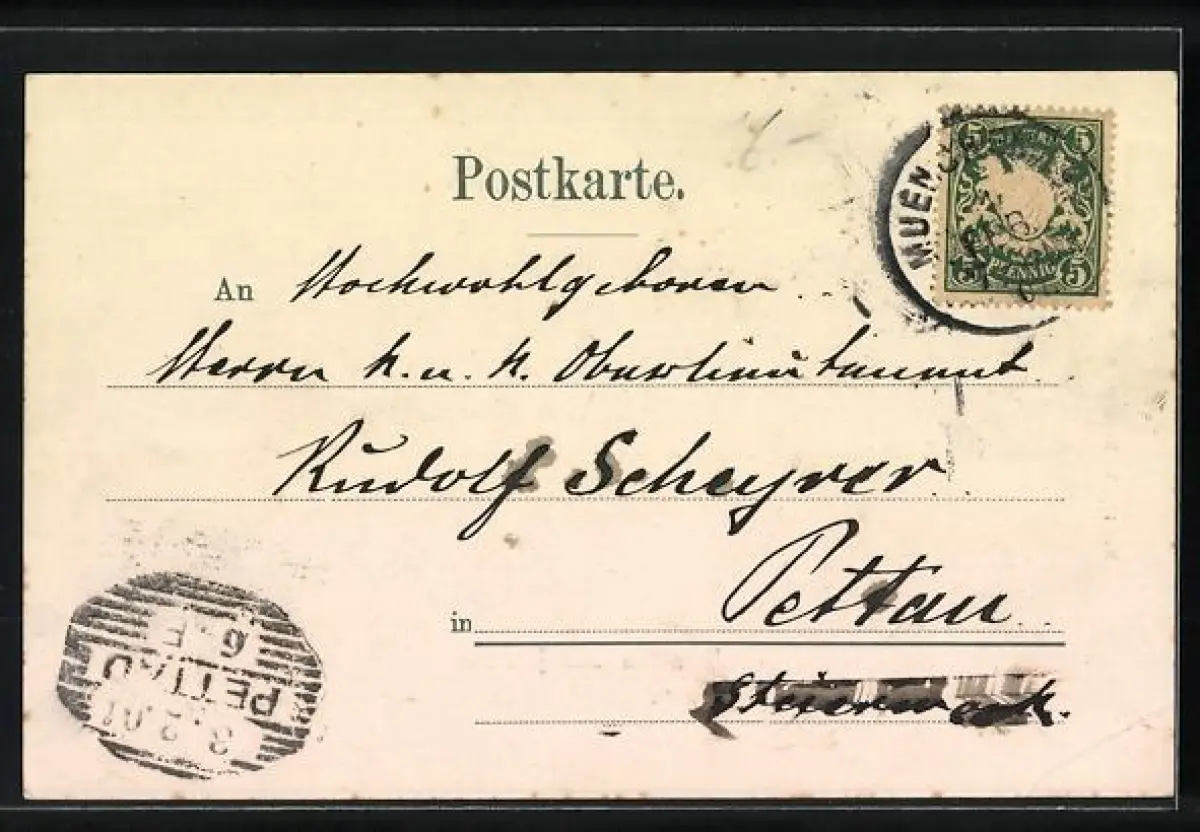 Postkarte.
MUENCH
5 5
PFENNIG
5 5
An Hochwohlgeboren
Herrn k. u. k. Oberlieutenant
Rudolf Scheyrer
in Pettau
Steiermark.
6.F
PETTAU
3.2.01